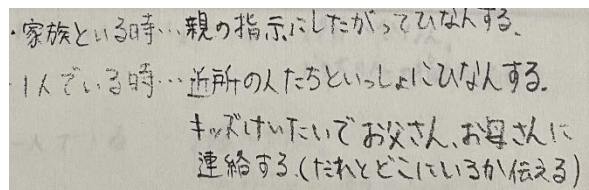 ・家族といる時…親の指示にしたがってひなんする。
・1人でいる時…近所の人たちといっしょにひなんする。
キッズけいたいでお父さん、お母さんに
連絡する。(だれとどこにいるか伝える)